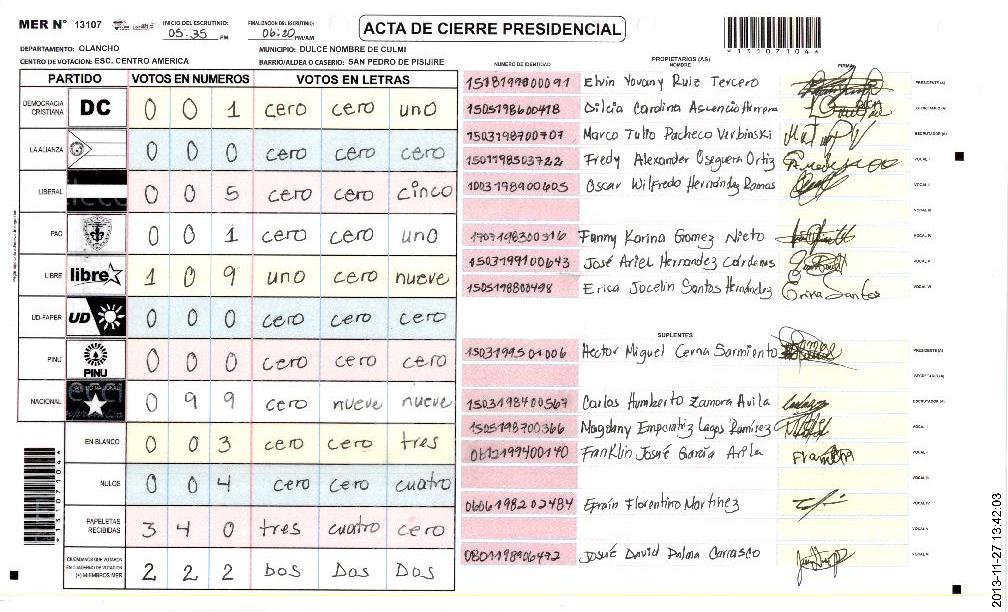 MER N° 13107
INICIO DEL ESCRUTINIO: 05:35 PM
FINALIZACION DEL ESCRUTINIO: 06:20 PM/AM
ACTA DE CIERRE PRESIDENCIAL
131071046
DEPARTAMENTO: OLANCHO
MUNICIPIO: DULCE NOMBRE DE CULMI
CENTRO DE VOTACION: ESC. CENTRO AMERICA
BARRIO/ALDEA O CASERIO: SAN PEDRO DE PISIJIRE
PARTIDO VOTOS EN NUMEROS VOTOS EN LETRAS
DEMOCRACIA CRISTIANA DC 0 0 1 cero cero uno
LA ALIANZA 0 0 0 cero cero cero
LIBERAL 0 0 5 cero cero cinco
PAC 0 0 1 cero cero uno
LIBRE libre 1 0 9 uno cero nueve
UD-FAPER UD 0 0 0 cero cero cero
PINU PINU 0 0 0 cero cero cero
NACIONAL 0 9 9 cero nueve nueve
EN BLANCO 0 0 3 cero cero tres
NULOS 0 0 4 cero cero cuatro
PAPELETAS RECIBIDAS 3 4 0 tres cuatro cero
CIUDADANOS QUE VOTARON EN CUADERNO DE VOTACION (+) MIEMBROS MER 2 2 2 Dos Dos Dos
131071046
NUMERO DE IDENTIDAD PROPIETARIOS (AS) NOMBRE FIRMA
Elvin Yovany Ruiz Tercero PRESIDENTE (A)
1505198600418 Dilcia Carolina Ascencio Herrera SECRETARIO (A)
1503198700707 Marco Tulio Pacheco Verbinski ESCRUTADOR (A)
1501198503722 Fredy Alexander Oseguera Ortiz VOCAL I
1003198900605 Oscar Wilfredo Hernández Ramos VOCAL II
VOCAL III
1707198300316 Fanny Karina Gomez Nieto VOCAL IV
1503199100643 José Ariel Hernandez Cárdenas VOCAL V
1505198800498 Erica Jocelin Santos Hernández Erica Santos VOCAL VI
SUPLENTES
1503199501006 Hector Miguel Cerna Sarmiento PRESIDENTE (A)
SECRETARIO (A)
1503198400567 Carlos Humberto Zamora Avila ESCRUTADOR (A)
1505198700366 Magdany Emperatriz Lagos Ramírez VOCAL I
0612199400140 Franklin Josué García Avila VOCAL II
VOCAL III
0606198202484 Efraín Florentino Martínez VOCAL IV
VOCAL V
0801198906472 Josué David Palma Carrasco VOCAL VI
2013-11-27 13:42:03